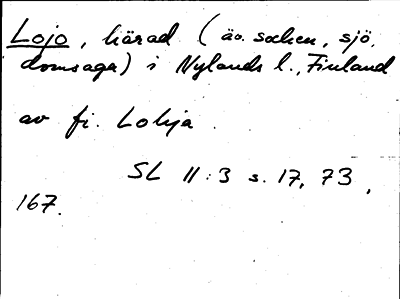 Lojo, härad (äv. socken, sjö,
domsaga) i Nylands l., Finland
av fi. Lohja.
SL II:3 s. 17, 73,
167.